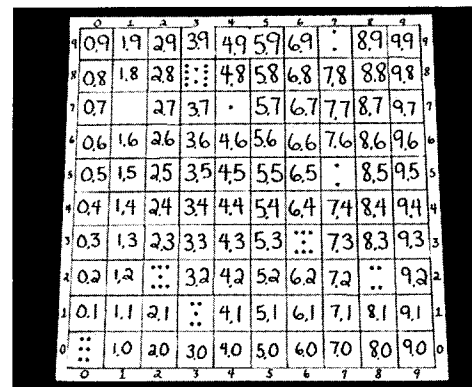 0 1 2 3 4 5 6 7 8 9
9 0,9 1,9 2,9 3,9 4,9 5,9 6,9 8,9 9,9 9
8 0,8 1,8 2,8 4,8 5,8 6,8 7,8 8,8 9,8 8
7 0,7 2,7 3,7 5,7 6,7 7,7 8,7 9,7 7
6 0,6 1,6 2,6 3,6 4,6 5,6 6,6 7,6 8,6 9,6 6
5 0,5 1,5 2,5 3,5 4,5 5,5 6,5 8,5 9,5 5
4 0,4 1,4 2,4 3,4 4,4 5,4 6,4 7,4 8,4 9,4 4
3 0,3 1,3 2,3 3,3 4,3 5,3 7,3 8,3 9,3 3
2 0,2 1,2 3,2 4,2 5,2 6,2 7,2 9,2 2
1 0,1 1,1 2,1 4,1 5,1 6,1 7,1 8,1 9,1 1
0 1,0 2,0 3,0 4,0 5,0 6,0 7,0 8,0 9,0 0
0 1 2 3 4 5 6 7 8 9